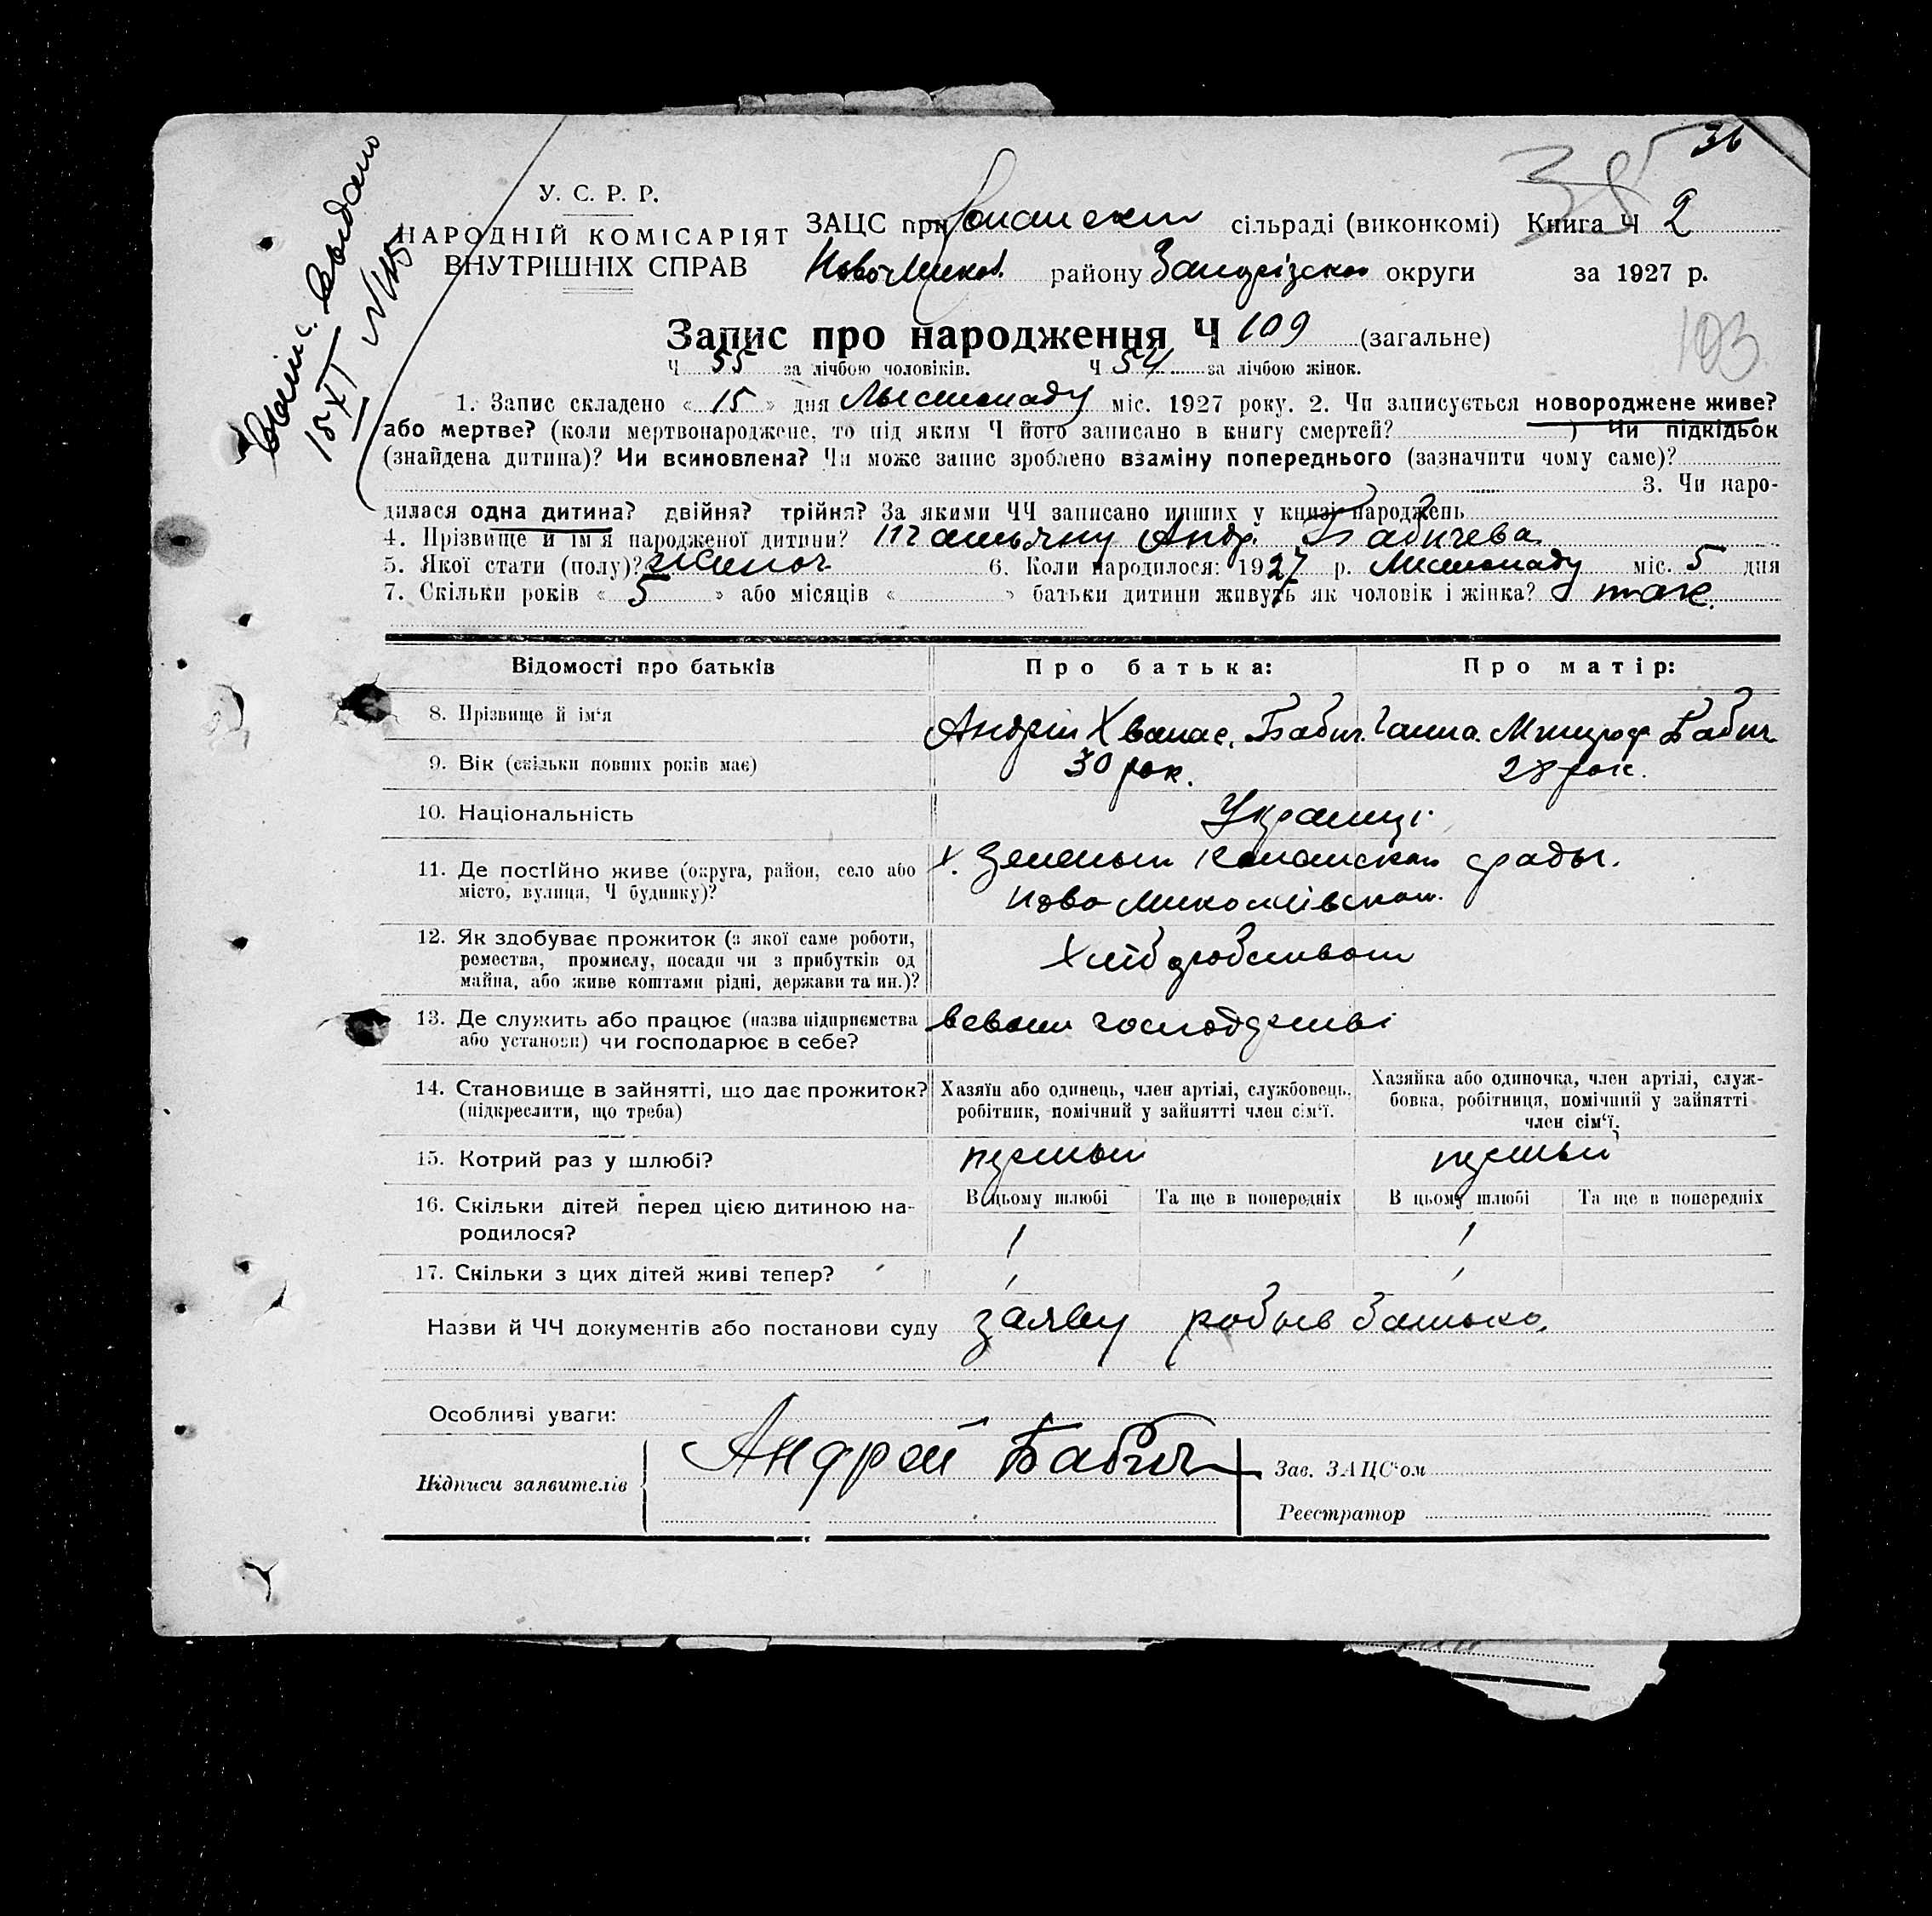 36
35
Свідс. выдано
15/XI N 115
У. С. Р. Р.
НАРОДНІЙ КОМІСАРІЯТ
ВНУТРІШНІХ СПРАВ
ЗАЦС при сільраді (виконкомі) Книга Ч 2
НовоМикол. району Запорізько округи за 1927 р.
Запис про народження Ч 109 (загальне)
193
Ч 55 за лічбою чоловіків. Ч 54 за лічбою жінок.
1. Запис складено « 15 » дня Лыстопаду міс. 1927 року. 2. Чи записується новороджене живе?
або мертве? (коли мертвонароджене, то під яким Ч його записано в книгу смертей? ) Чи підкідьок
(знайдена дитина)? Чи всиновлена? Чи може запис зроблено взаміну попереднього (зазначити чому саме)?
3. Чи наро-
дилася одна дитина? двійня? трійня? За якими ЧЧ записано инших у книзі народжень
4. Прізвище й ім'я народженої дитини? Андр. Бабичева
5. Якої стати (полу)? жиноч 6. Коли народилося: 1927 р. Листопаду міс. 5 дня
7. Скільки років « 5 » або місяців « » батьки дитини живуть як чоловік і жінка? так.
Відомості про батьків Про батька: Про матір:
8. Прізвище й ім'я Андрій Хванас. Бабич. Ганна Митроф. Бабич
9. Вік (скільки повних років має) 30 рок. 28 рок.
10. Національність Украинці
11. Де постійно живе (округа, район, село або х. Зеленый срады.
місто, вулиця, Ч будинку)? Ново Миколаівськои
12. Як здобуває прожиток (з якої саме роботи, Хлібробством
ремества, промислу, посади чи з прибутків од
майна, або живе коштами рідні, держави та ин.)?
13. Де служить або працює (назва підприємства всвоем господарстві
або установи) чи господарює в себе?
14. Становище в зайнятті, що дає прожиток? Хазяїн або одинець, член артілі, службовець, Хазяйка або одиночка, член артілі, служ-
(підкреслити, що треба) робітник, помічний у зайнятті член сім'ї. бовка, робітниця, помічний у зайнятті
член сім'ї.
15. Котрий раз у шлюбі? першый першый
16. Скільки дітей перед цією дитиною на- В цьому шлюбі Та ще в попередніх В цьому шлюбі Та ще в попередніх
родилося? 1 1
17. Скільки з цих дітей живі тепер? 1 1
Назви й ЧЧ документів або постанови суду заяву робыв батько
Особливі уваги:
Підписи заявителів Андрей Бабич Зав. ЗАЦС'ом
Реєстратор